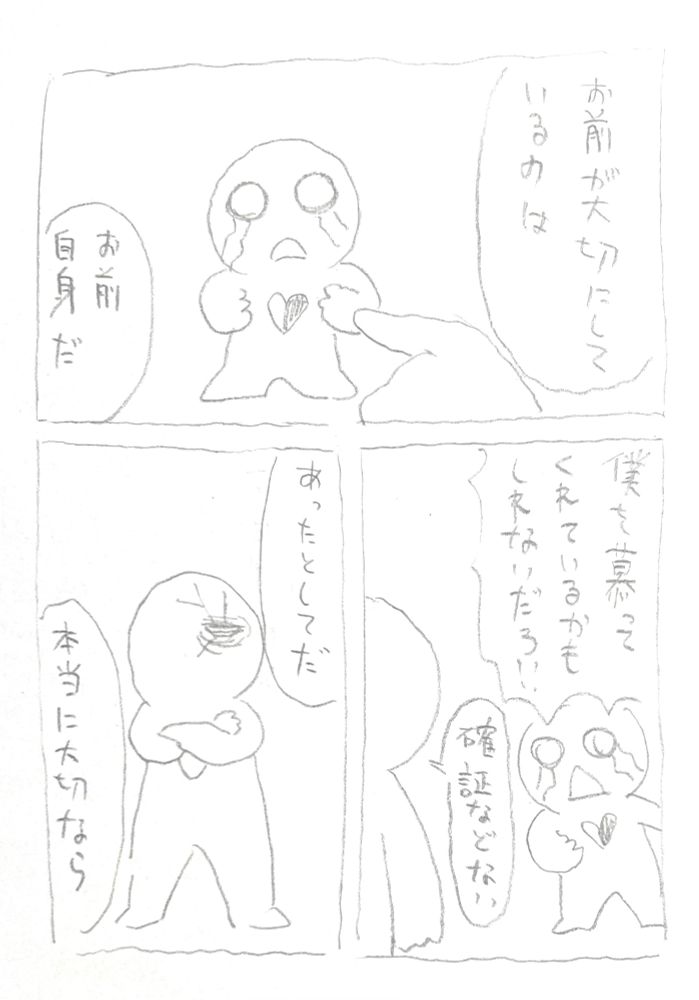 お前が大切にして
いるのは
お前
自身だ
僕を慕って
くれているかも
しれないだろ!!
確証などない
あったとしてだ
本当に大切なら